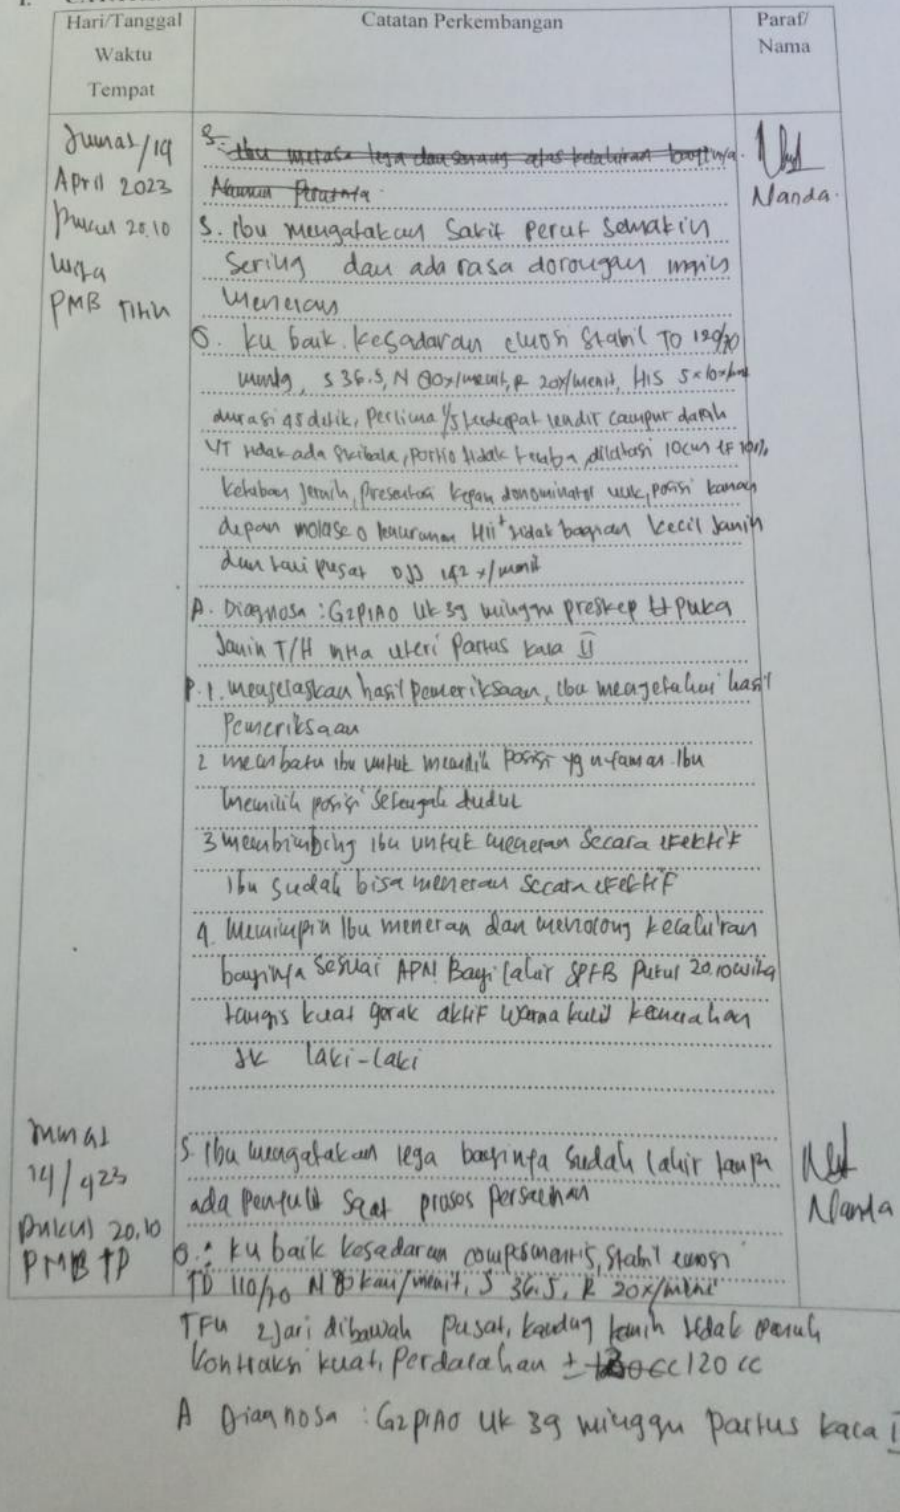 Hari/Tanggal
Waktu
Tempat
Catatan Perkembangan
Paraf/
Nama
Jumat/14
April 2023
Pukul 20.10
Wita
PMB Titin
S. Ibu merasa lega dan senang atas kelahiran bayinya.
Namun Perutnya
Nanda.
S. Ibu mengatakan sakit perut semakin
Sering dan ada rasa dorongan ingin
Meneran
O. ku baik. kesadaran emosi stabil TD 120/70
mmHg, S 36.5, N 80x/menit, R 20x/menit, His 5x10x
durasi 45 detik, Perlima 1/5 terdapat lendir campur darah
VT tidak ada skibala, portio tidak teraba, dilatasi 10cm eF 100%
ketuban Jernih, presentasi kepala denominator uuk, posisi kanan
depan molase 0 HIII+ tidak bagian kecil Janin
dan tali pusat DJJ 142x/menit
A. Diagnosa : G2P1A0 UK 39 minggu preskep puka
Janin T/H intra uteri Partus kala II
P. 1. menjelaskan hasil pemeriksaan, Ibu mengetahui hasil
Pemeriksaan
2 membatu ibu untuk memilih posisi yg nyaman. Ibu
Memilih posisi setengah duduk
3 membimbing ibu untuk meneran secara efektif
Ibu sudah bisa meneran secara efektif
4. Memimpin Ibu meneran dan menolong kelahiran
bayinya sesuai APN! Bayi lahir SPTB Pukul 20.10 wita
tangis kuat gerak aktif warna kulit kemerahan
JK laki-laki
Jumat
14/423
pukul 20.10
PMB TP
S. Ibu mengatakan lega bayinya sudah lahir tanpa
ada penyulit saat proses persalinan
Nanda
O : ku baik kesadaran composmentis, stabil emosi
TD 110/70 N 80 kali/menit, S 36.5, R 20x/menit
TFU 2 jari dibawah pusat, kandung kemih tidak penuh
Kontraksi kuat, Perdarahan ± 120 cc
A Diagnosa : G2P1A0 UK 39 minggu partus kala